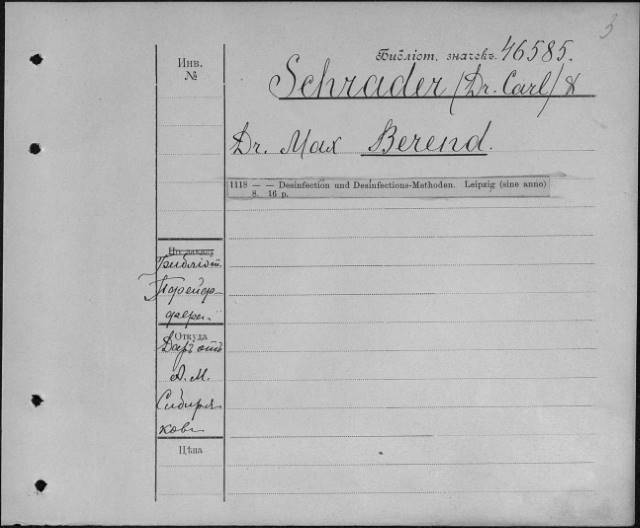 3
Библіот. значекъ. 46585.
Инв.
№
Schrader (Dr. Carl) &
Dr. Max Berend.
1118 — — Desinfection und Desinfections-Methoden. Leipzig (sine anno)
8. 16 p.
По заказу
Откуда
Даръ отъ
А. М.
Сибиря-
кова
Цѣна